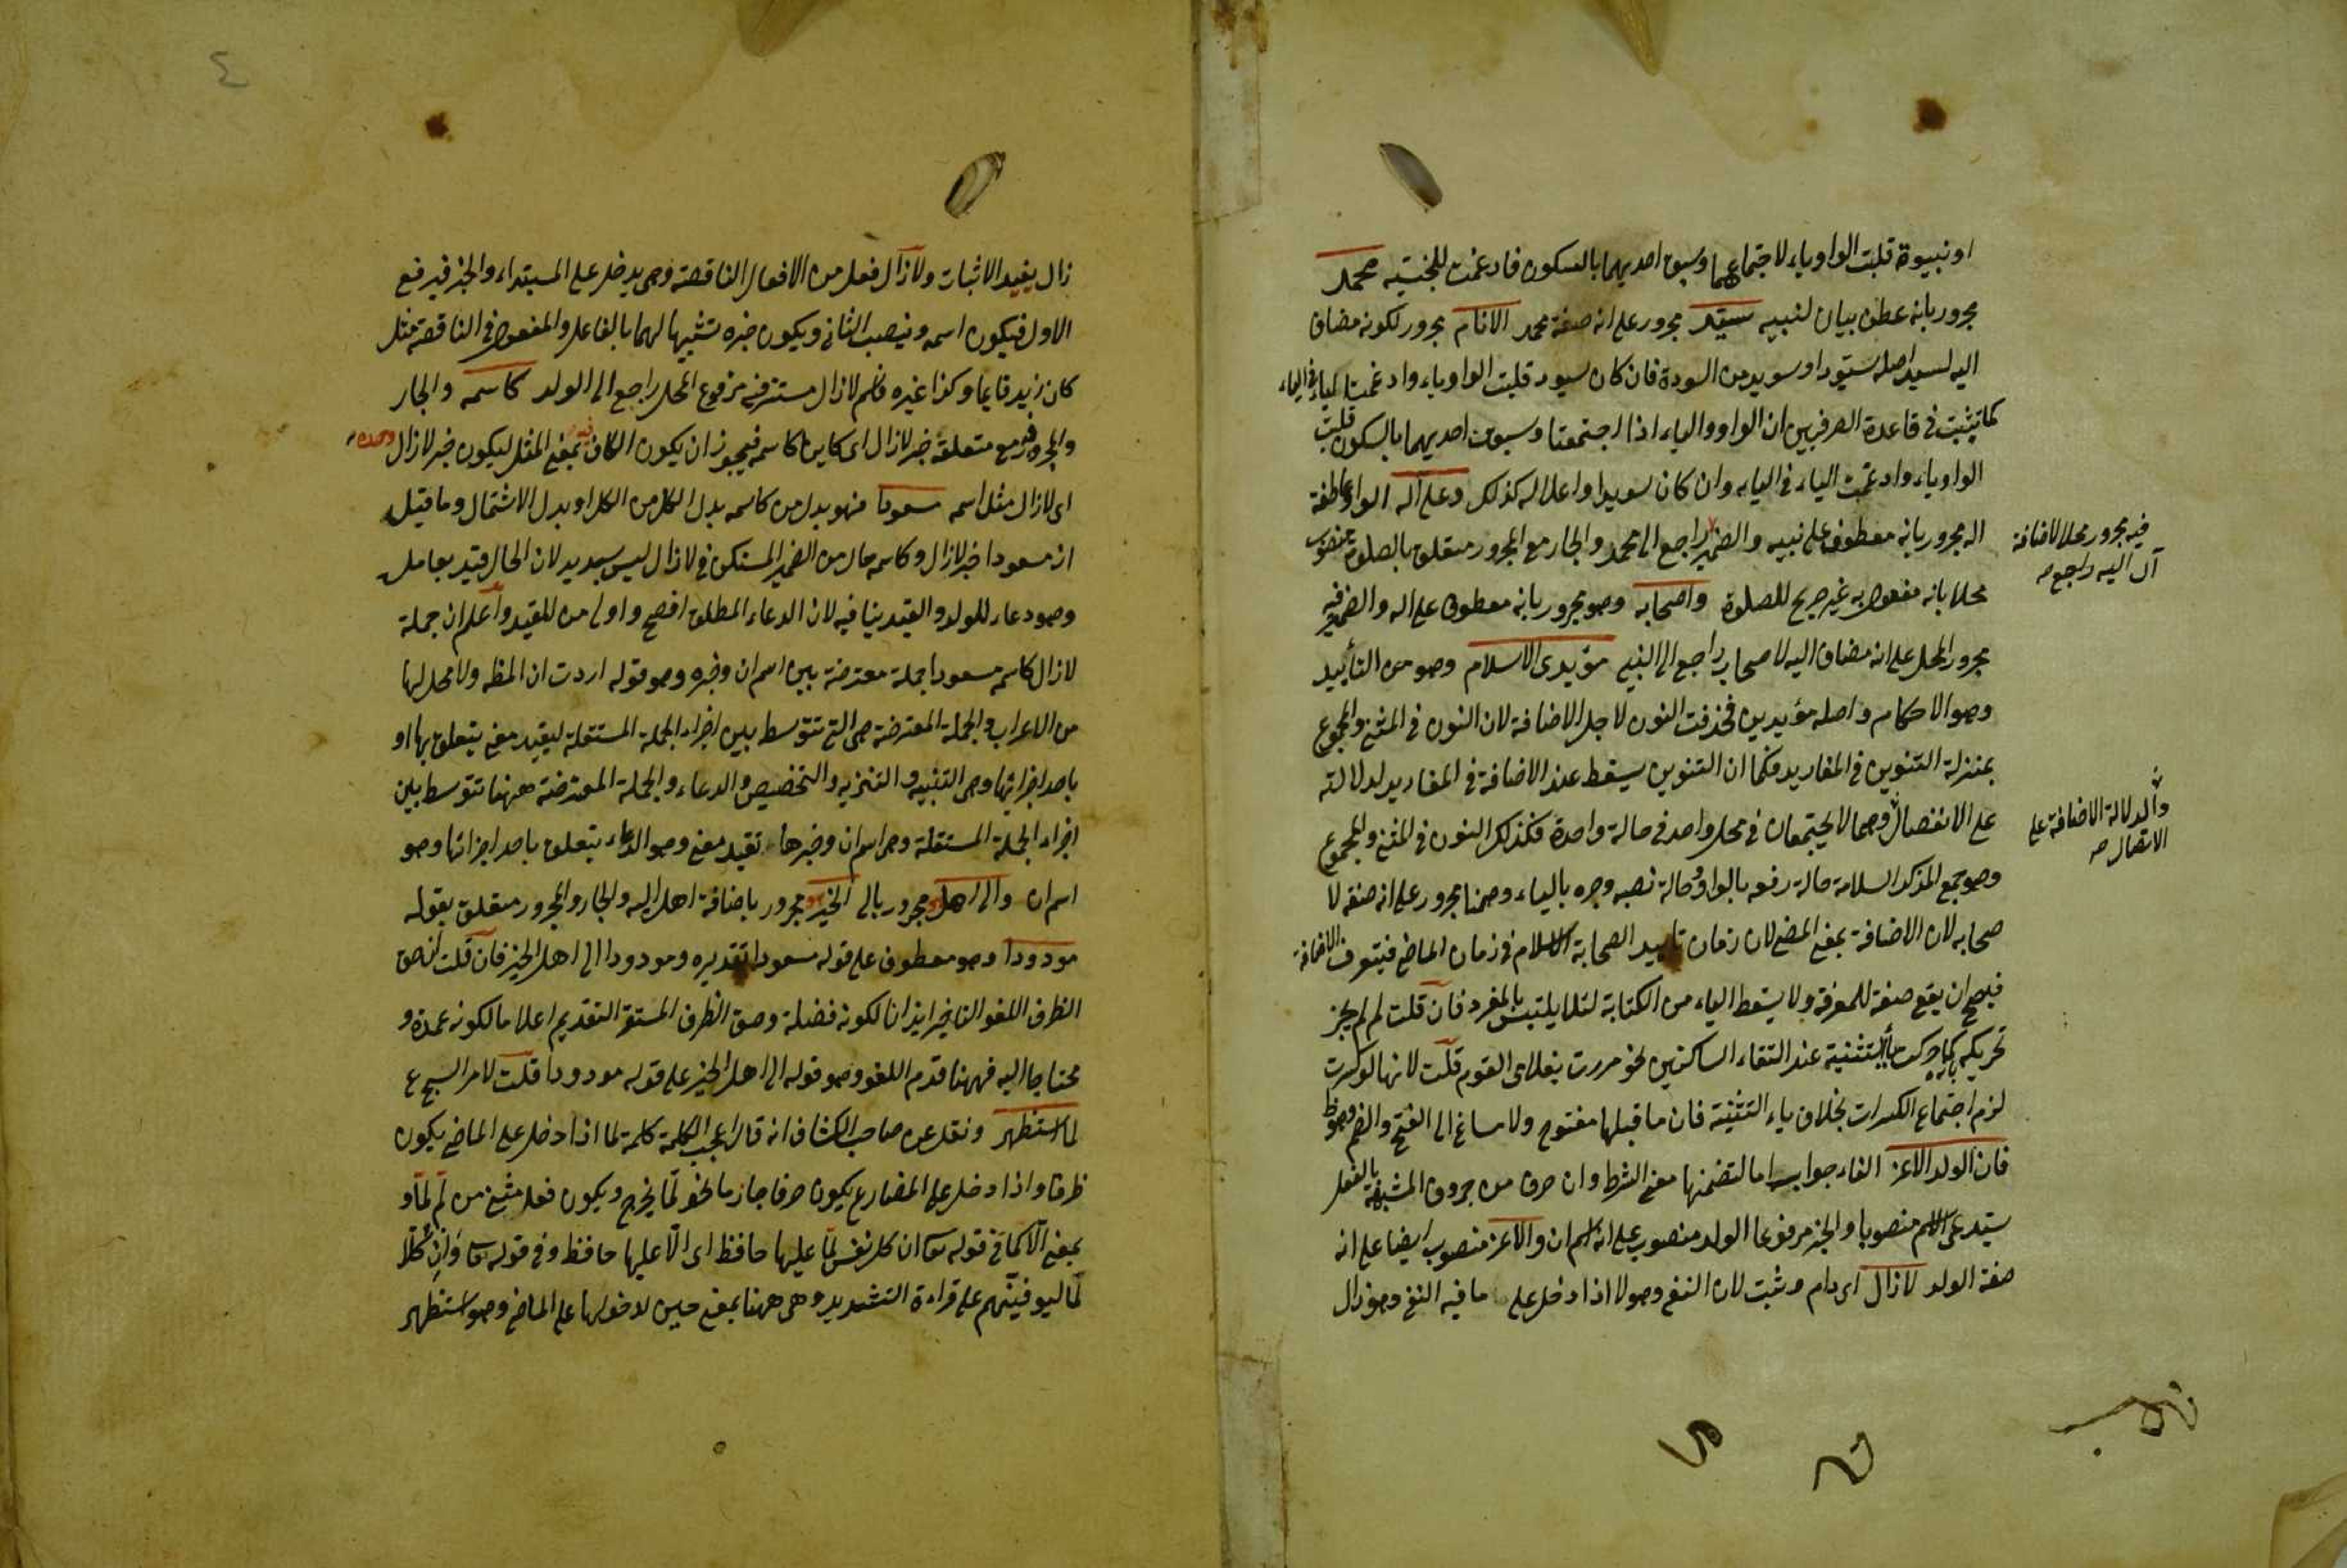 او نبيوة قلبت الواو ياء لاجتماعهما وسبق احديهما بالسكون فادغمت للجنسية محمد
مجرور بانه عطف بيان لنبيه سيد مجرور على انه صفة محمد الانام مجرور لكونه مضاف
اليه لسيد اصله سيود او سويد من السودة فان كان سيود قلبت الواو ياء وادغمت الياء في الياء
كما تثبت في قاعدة الصرفيين ان الواو والياء اذا اجتمعتا وسبقت احديهما بالسكون قلبت
الواو ياء وادغمت الياء في الياء وان كان سويدا واعلاله كذلك وعلى آله الواو عاطفة
اله مجرور بانه معطوف على نبيه والضمير راجع الى محمد والجار مع المجرور متعلق بالصلوة منصوب
محلا بانه مفعول به غير صريح للصلوة واصحابه وهو مجرور بانه معطوف على اله والضمير فيه
مجرور المحل على انه مضاف اليه لاصحاب راجع الى النبي مؤيدى الاسلام وهو من التأييد
وهو الاحكام واصله مؤيدين فحذفت النون لاجل الاضافة لان النون في المثنى والمجموع
بمنزلة التنوين في المفاريد فكما ان التنوين يسقط عند الاضافة في المفاريد لدلالته
على الانفصال وهما لا يجتمعان في محل واحد في حالة واحدة فكذلك النون في المثنى والمجموع
وهو جمع المذكر السلامة حالة رفعه بالواو وحالة نصبه وجره بالياء وههنا مجرور على انه صفة لا
صحابه لان الاضافة بمعنى المضى لان زمان تاييد الصحابة الاسلام في زمان الماضى فيتعرف بالاضافة
فيصح ان يقع صفة للمعرفة ولا يسقط الياء من الكتابة لئلا يلتبس بالمفرد فان قلت لم لم يجز
تحريكه كما حركت ياء التثنية عند التقاء الساكنين نحو مررت بغلامى القوم قلت لانها لو كسرت
لزم اجتماع الكسرات بخلاف ياء التثنية فان ما قبلها مفتوح ولا مساغ الى الفتح والضم
فان الولد الاعز الفاء جواب اما لتضمنها معنى الشرط وان حرف من حروف المشبهة بالفعل
يستدعى الاسم منصوبا والخبر مرفوعا الولد منصوب على انه اسم ان والاعز منصوب ايضا على انه
صفة الولد لازال اى دام وثبت لان النفى وهو لا اذا دخل على ما فيه النفى وهو زال
فيه مجرور محلا لاضافة
آل اليه راجع صه
والدلالة الاضافة على
الاتصال صه
٤
زال يفيد الاثبات ولازال فعل من الافعال الناقصة وهى يدخل على المبتداء والخبر فيرفع
الاول فيكون اسمه وينصب الثانى ويكون خبره تشبيها لهما بالفاعل والمفعول في الناقصة مثل
كان زيد قايما وكذا غيره فاسم لازال مستتر فيه مرفوع المحل راجع الى الولد كاسمه والجار
والمجرور مع متعلقه خبر لازال اى كاينا كاسمه فيجوز ان يكون الكاف بمعنى المثل ليكون خبر لازال وحده
اى لازال مثل اسمه مسعودا فهو بدل من كاسمه بدل الكل من الكل او بدل الاشتمال وما قيل
ان مسعودا خبر لازال وكاسمه حال من الضمير المستكن في لازال ليس بسديد لان الحال قيد بعامل
وهو دعاء للولد والقيد ينافيه لان الدعاء المطلق افصح واولى من المقيد واعلم ان جملة
لازال كاسمه مسعودا جملة معترضة بين اسم ان وخبره وهو قوله اردت ان المظه ولا محل لها
من الاعراب والجملة المعترضة هى التى تتوسط بين اجزاء الجملة المستقلة ليفيد معنى يتعلق بها او
باحد اجزائها وهى التنبيه والتنزيه والتخصيص والدعاء والجملة المعترضة ههنا تتوسط بين
اجزاء الجملة المستقلة وهى اسم ان وخبرها تفيد معنى وهو الدعاء يتعلق باحد اجزائها وهو
اسم ان والى اهل مجرور بالى الخير مجرور باضافة اهل اليه والجار والمجرور متعلق بقوله
مودودا وهو معطوف على قوله مسعودا تقديره ومودودا الى اهل الخير فان قلت ان حق
الظرف اللغو التاخير ايذانا لكونه فضلة وحق الظرف المستقر التقديم اعلاما لكونه عمدة و
محتاجا اليه فههنا قدم اللغو وهو قوله الى اهل الخير على قوله مودودا قلت لامر السجع
لما استظهر ونقل عن صاحب الكشاف انه قال اعجب الكلمة كلمة لما اذا دخل على الماضى يكون
ظرفا واذا دخل على المضارع يكون حرفا جازما نحو لما يخرج ويكون فعل مثنى من لم لما و
بمعنى الا كما في قوله تعا ان كل نفس لما عليها حافظ اى الا عليها حافظ وفي قوله تعا وان كلا
لما ليوفينهم على قراءة التشديد وهى ههنا بمعنى حين لدخولها على الماضى وهو استظهر